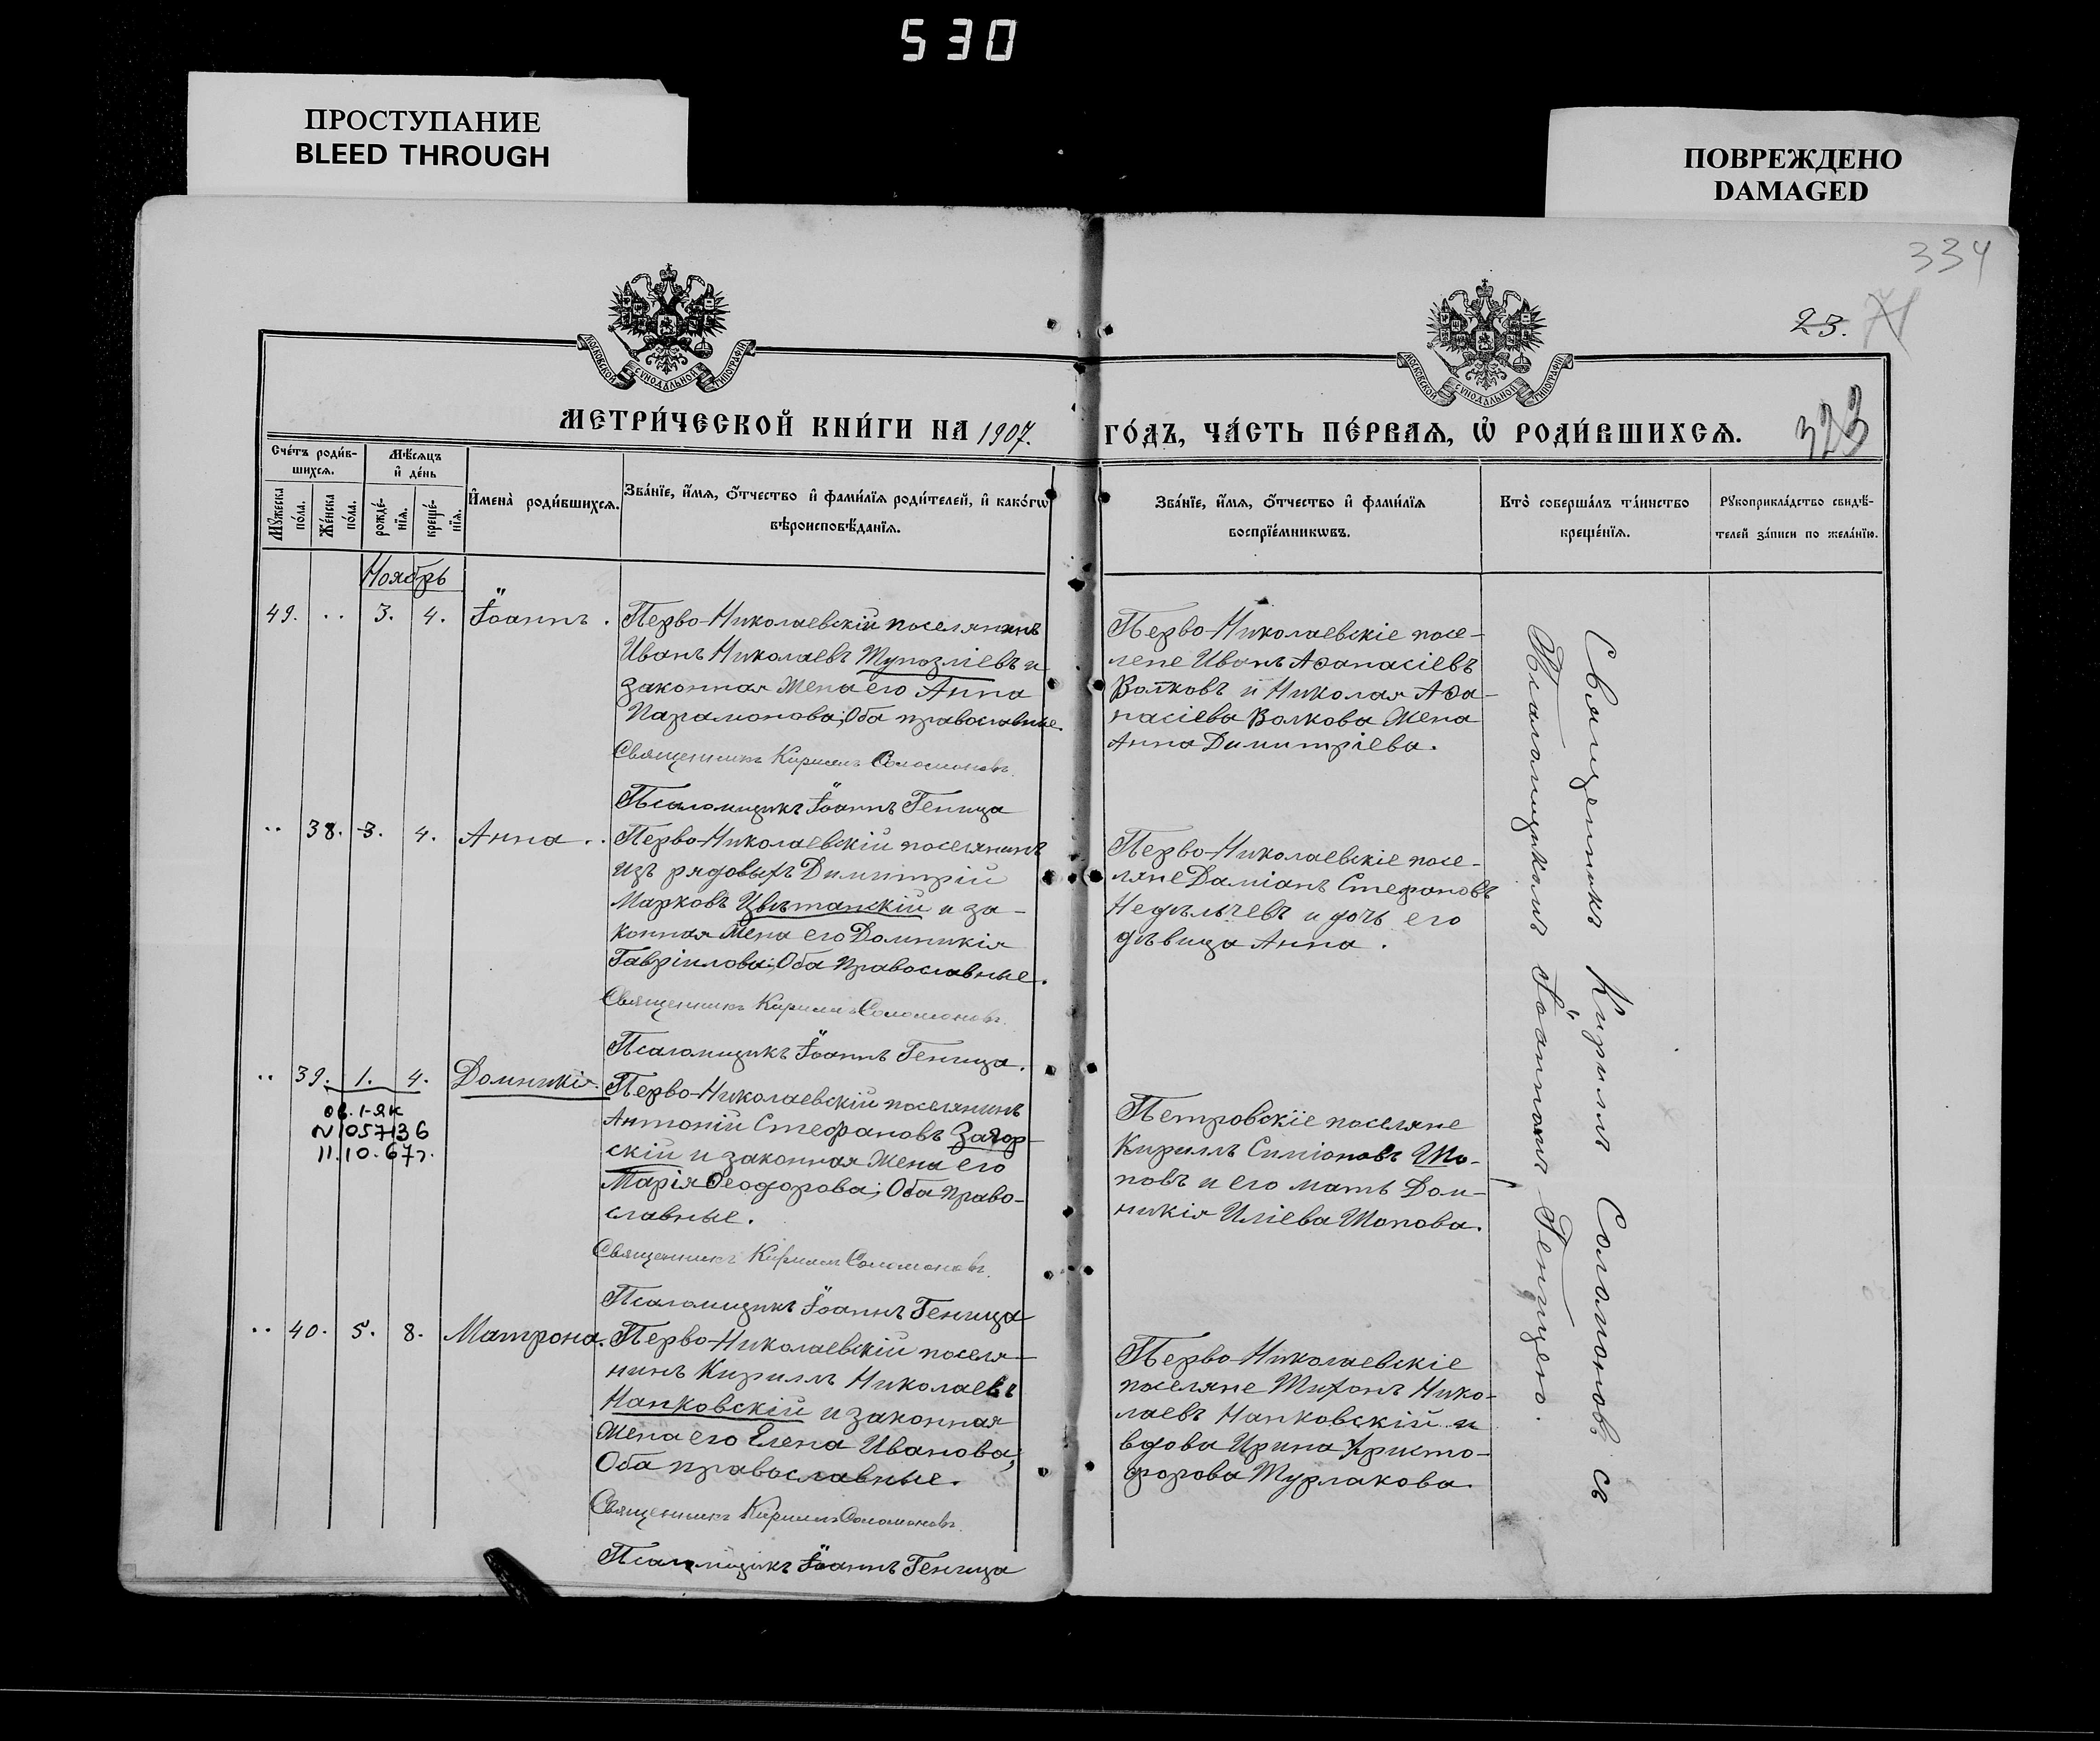 530
ПРОСТУПАНИЕ
BLEED THROUGH
ПОВРЕЖДЕНО
DAMAGED
334
23. 71
323
МОСКОВСКОЙ СѴНОДАЛЬНОЙ ТИПОГРАФІИ
МОСКОВСКОЙ СѴНОДАЛЬНОЙ ТИПОГРАФІИ
МЕТРИ́ЧЕСКОЙ КНИ́ГИ НА 1907. ГО́ДЪ, ЧА́СТЬ ПЕ́РВАЯ, Ѡ҆ РОДИ́ВШИХСЯ.
Сче́тъ роди́в-
шихся.
Мꙋ́жеска по́ла.
Же́нска по́ла.
Мѣ́сяцъ
и҆ де́нь
рожде́-
нїя.
креще́-
нїя.
И҆мена̀ роди́вшихся.
Зва́нїе, и҆́мя, ѻ҆́тчество и҆ фами́лїя роди́телей, и҆ како́гѡ
вѣроисповѣ́данїя.
Зва́нїе, и҆́мя, ѻ҆́тчество и҆ фами́лїя
воспрїе́мникѡвъ.
Кто̀ соверша́лъ та́инство
креще́нїя.
Рꙋкоприкла́дство свидѣ́-
телей за́писи по жела́нїю.
Ноябрь
49. .. 3. 4. Іоаннъ.
Перво-Николаевскій поселянинъ
Иванъ Николаевъ Тупозліевъ и
законная жена его Анна
Парамонова; Оба православные.
Священникъ Кириллъ Соломоновъ.
Псаломщикъ Іоаннъ Геница
Перво-Николаевскіе посе-
лене Иванъ Аѳанасіевъ
Волковъ и Николая Аѳа-
насіева Волкова жена
Анна Димитріева.
.. 38. 3. 4. Анна..
Перво-Николаевскій поселянинъ
изъ рядовыхъ Димитрій
Марковъ Цвѣтанскій и за-
конная жена его Домникія
Гавріилова; Оба православные.
Священникъ Кириллъ Соломоновъ.
Псаломщикъ Іоаннъ Геница.
Перво-Николаевскіе посе-
ляне Даміанъ Стефановъ
Недѣльчевъ и дочь его
дѣвица Анна.
.. 39. 1. 4. Домникія.
св. I-ЯК
N 057136
11.10.67г.
Перво-Николаевскій поселянинъ
Антоній Стефановъ Загор-
скій и законная жена его
Марія Ѳеодорова; Оба право-
славные.
Священникъ Кириллъ Соломоновъ.
Псаломщикъ Іоаннъ Геница
Петровскіе поселяне
Кириллъ Симіоновъ Шо-
повъ и его мать Дом-
никія Иліева Шопова.
.. 40. 5. 8. Матрона.
Перво-Николаевскій поселя-
нинъ Кириллъ Николаевъ
Напковскій и законная
жена его Елена Иванова;
Оба православные.
Священникъ Кириллъ Соломоновъ.
Псаломщикъ Іоаннъ Геница
Перво-Николаевскіе
поселяне Тихонъ Нико-
лаевъ Напковскій и
вдова Ирина Христо-
форова Турлакова.
Священникъ Кириллъ Соломоновъ съ
Псаломщикомъ Іоанномъ Геницею.